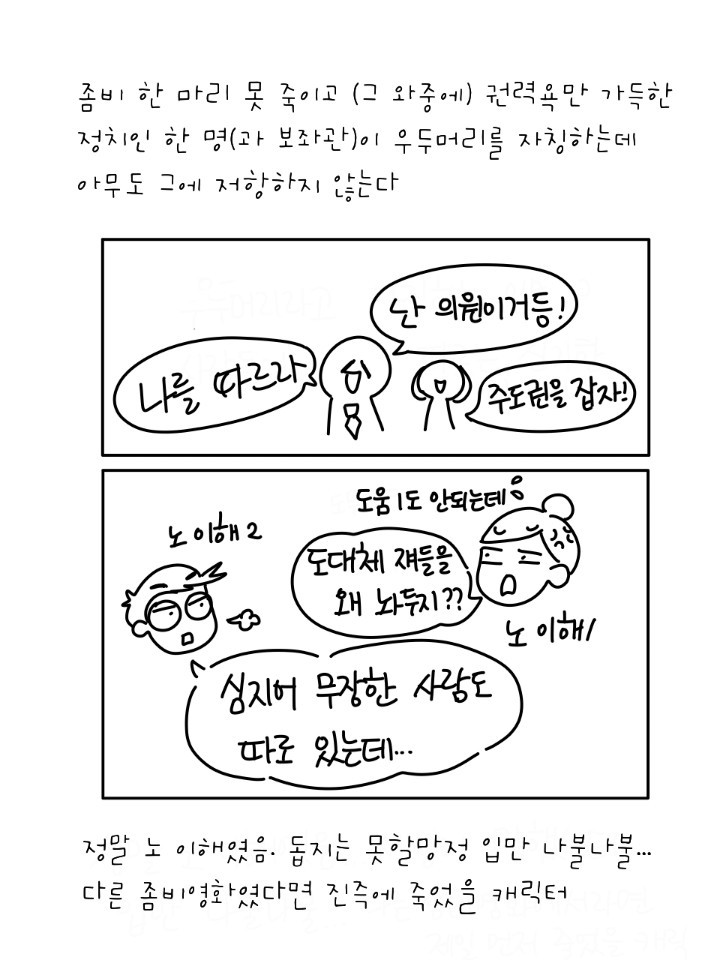 좀비 한 마리 못 죽이고 (그 와중에) 권력욕만 가득한
정치인 한 명(과 보좌관)이 우두머리를 자칭하는데
아무도 그에 저항하지 않는다
난 의원이거등!
나를 따르라
주도권을 잡자!
도움 1도 안되는데
노 이해 2
도대체 쟤들을
왜 놔두지??
노 이해1
심지어 무장한 사람도
따로 있는데...
정말 노 이해였음. 돕지는 못할망정 입만 나불나불...
다른 좀비영화였다면 진즉에 죽었을 캐릭터